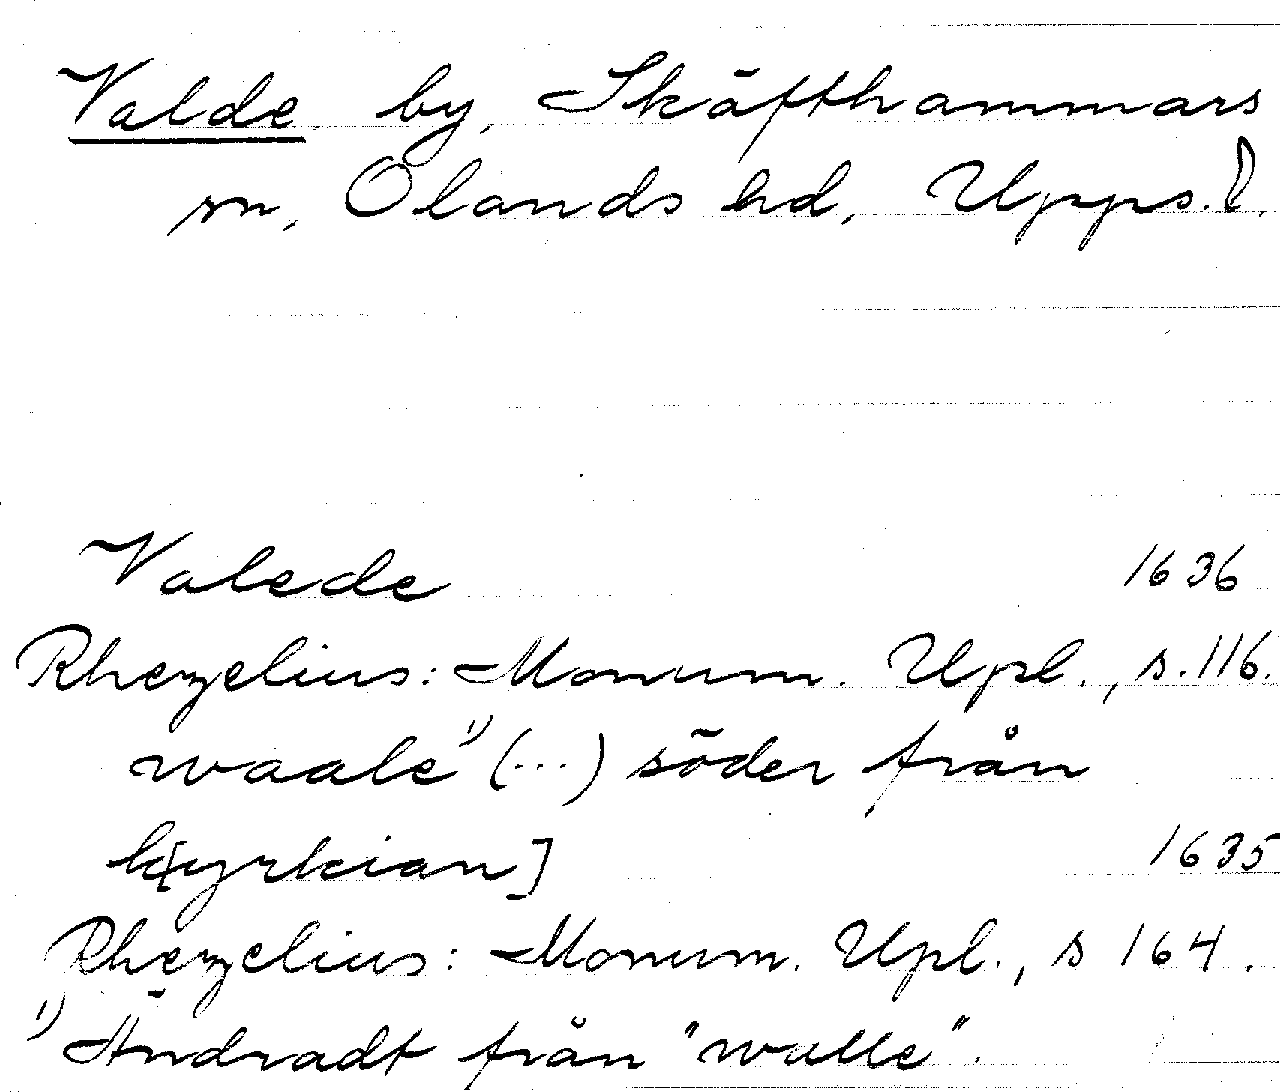 Valde by, Skäfthammars
sn, Olands hd, Upps. l.
Valede 1636
Rhezelius: Monum. Upl., s. 116.
waale¹⁾ (...) söder från
k[yrkian] 1635
Rhezelius: Monum. Upl., s 164.
¹⁾ Ändradt från "walle".